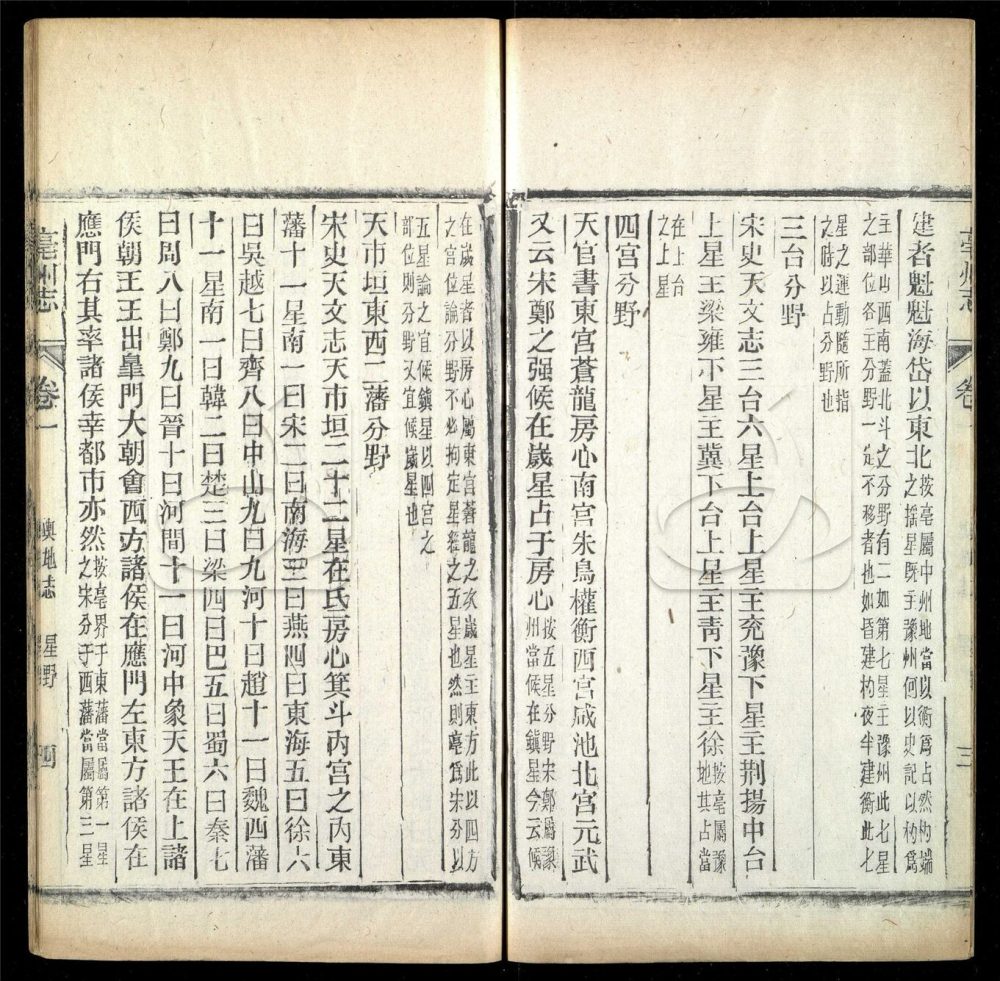 建者魁魁海岱以東北按亳屬中州地當以衡爲占然杓端
之揺星既主豫州何以史記以杓爲
主華山西南蓋北斗之分野有二如第七星主豫州此七星
之部位各主分野一定不移者也如昏建杓夜半建衡此七
星之運動隨所指
之時以占分野也
三台分野
宋史天文志三台六星上台上星主兗豫下星主荆揚中台
上星主梁雍下星主冀下台上星主靑下星主徐按亳屬豫
地其占當
在上台
之上星
四宮分野
天官書東宮蒼龍房心南宮朱鳥權衡西宮咸池北宮元武
又云宋鄭之强候在歲星占于房心按五星分野宋鄭屬豫
州當候在鎭星今云候
在歲星者以房心屬東宮蒼龍之次歲星主東方此以四方
之宮位論分野不必拘定星經之五星也然則亳爲宋分以
五星論之宜候鎭星以四宮之
部位則分野又宜候歲星也
天市垣東西二藩分野
宋史天文志天市垣二十二星在氐房心箕斗內宮之內東
藩十一星南一曰宋二曰南海三曰燕四曰東海五曰徐六
曰吳越七曰齊八曰中山九曰九河十曰趙十一曰魏西藩
十一星南一曰韓二曰楚三曰梁四曰巴五曰蜀六曰秦七
曰周八曰鄭九曰晉十曰河間十一曰河中象天王在上諸
侯朝王王出臯門大朝會西方諸侯在應門左東方諸侯在
應門右其率諸侯幸都市亦然按亳界于東藩當屬第一星
之宋分于西藩當屬第三星
亳州志 卷一 輿地志 星野 四